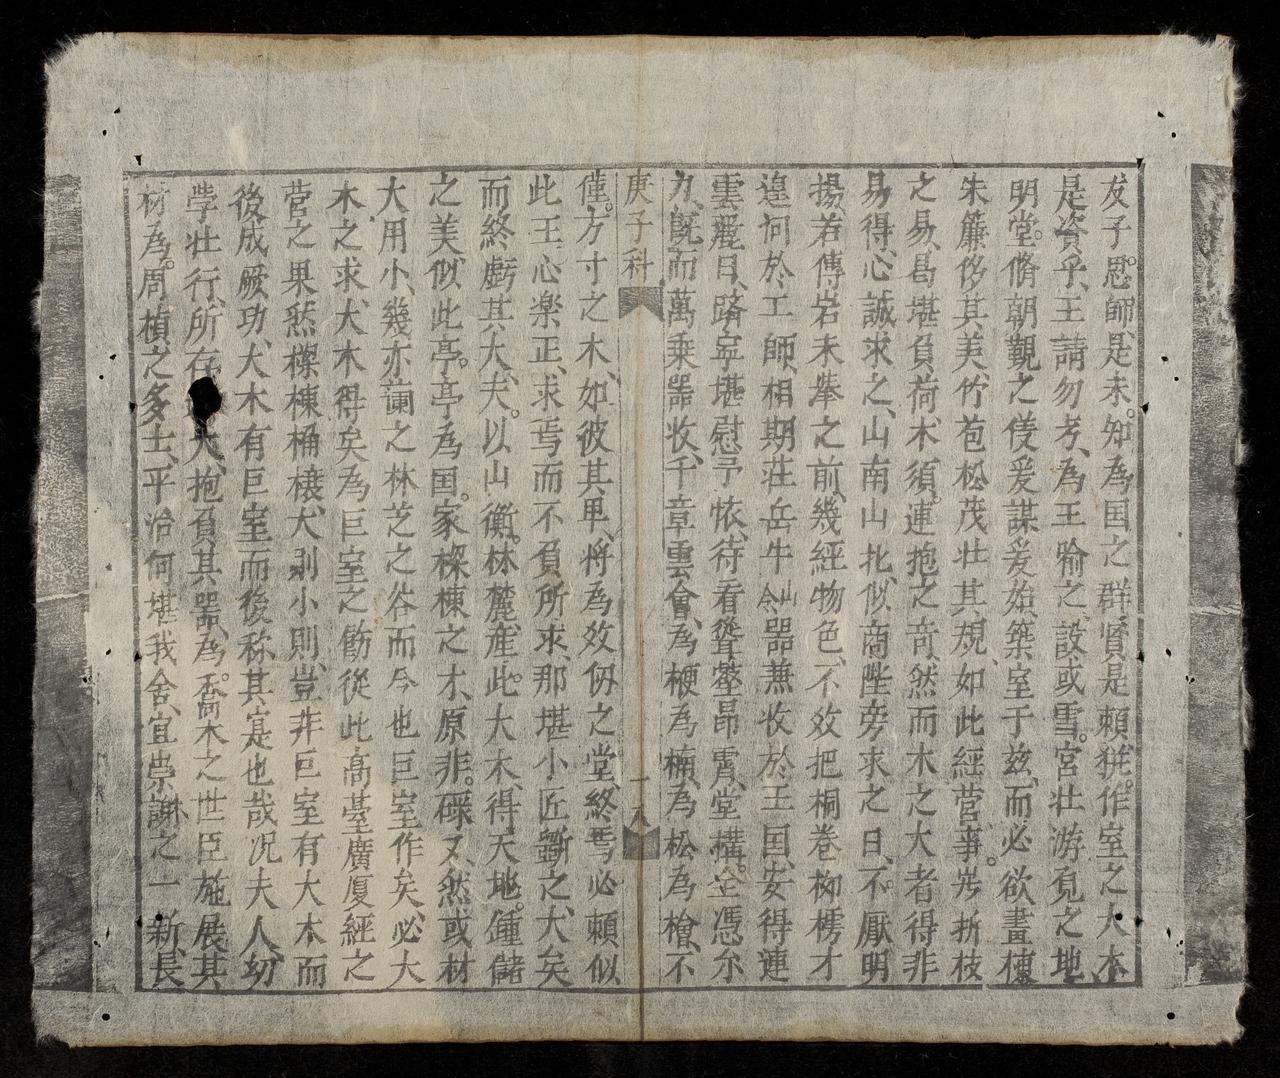 友子思師、是未。知為国之群賢是頼、犹。作室之大木
是資乎、王請勿考、為王喻之、設或雪。宮壮游覓之地
明堂。脩朝覲之儀爰謀爰始築室于兹、而必欲畫棟
朱簾侈其美、竹苞松茂壮其規、如此經营事。岂折枝
之易、曷堪負荷、木須。連抱之竒、然而木之大者得非
易得、心誠求之、山南山北、似商陛旁求之日、不厭明
揚若傅岩未舉之前、幾經物色、不效把桐巻柳樗才
遑何於工師、相期荘岳牛山器兼收於王国、安得連
雲麗日、躋寧堪慰予懷、待看聳壑昂霄、堂構。全憑尔
力、既而萬乗器收、千章雲會、為梗為楠、為松為檜、不
庚子科
一八
僅。方寸之木、如彼其卑、将為效仞之堂、終焉必頼似
此王心楽正、求焉而不負所求、那堪小匠斵之、大矣
而終虧其大、夫。以山衡。林麓、産此。大木、得天地。鍾儲
之美、似此亭。亭為国。家樑棟之才、原非。碌又、然或材
大用小、幾亦蘭之林芝之谷而今也巨室作矣、必大
木之求、大木得矣為巨室之勸從此高臺廣厦經之
营之果然樑棟桷榱、大剥小則、豈非巨室有大木而
後成厥功、大木有巨室而後称其寔也哉况夫人、幼
斈壮行、所存大、抱負其器、為。喬木之世臣施展其
材為。周楨之多士、平治何堪我舍、宜崇謝之一新、長